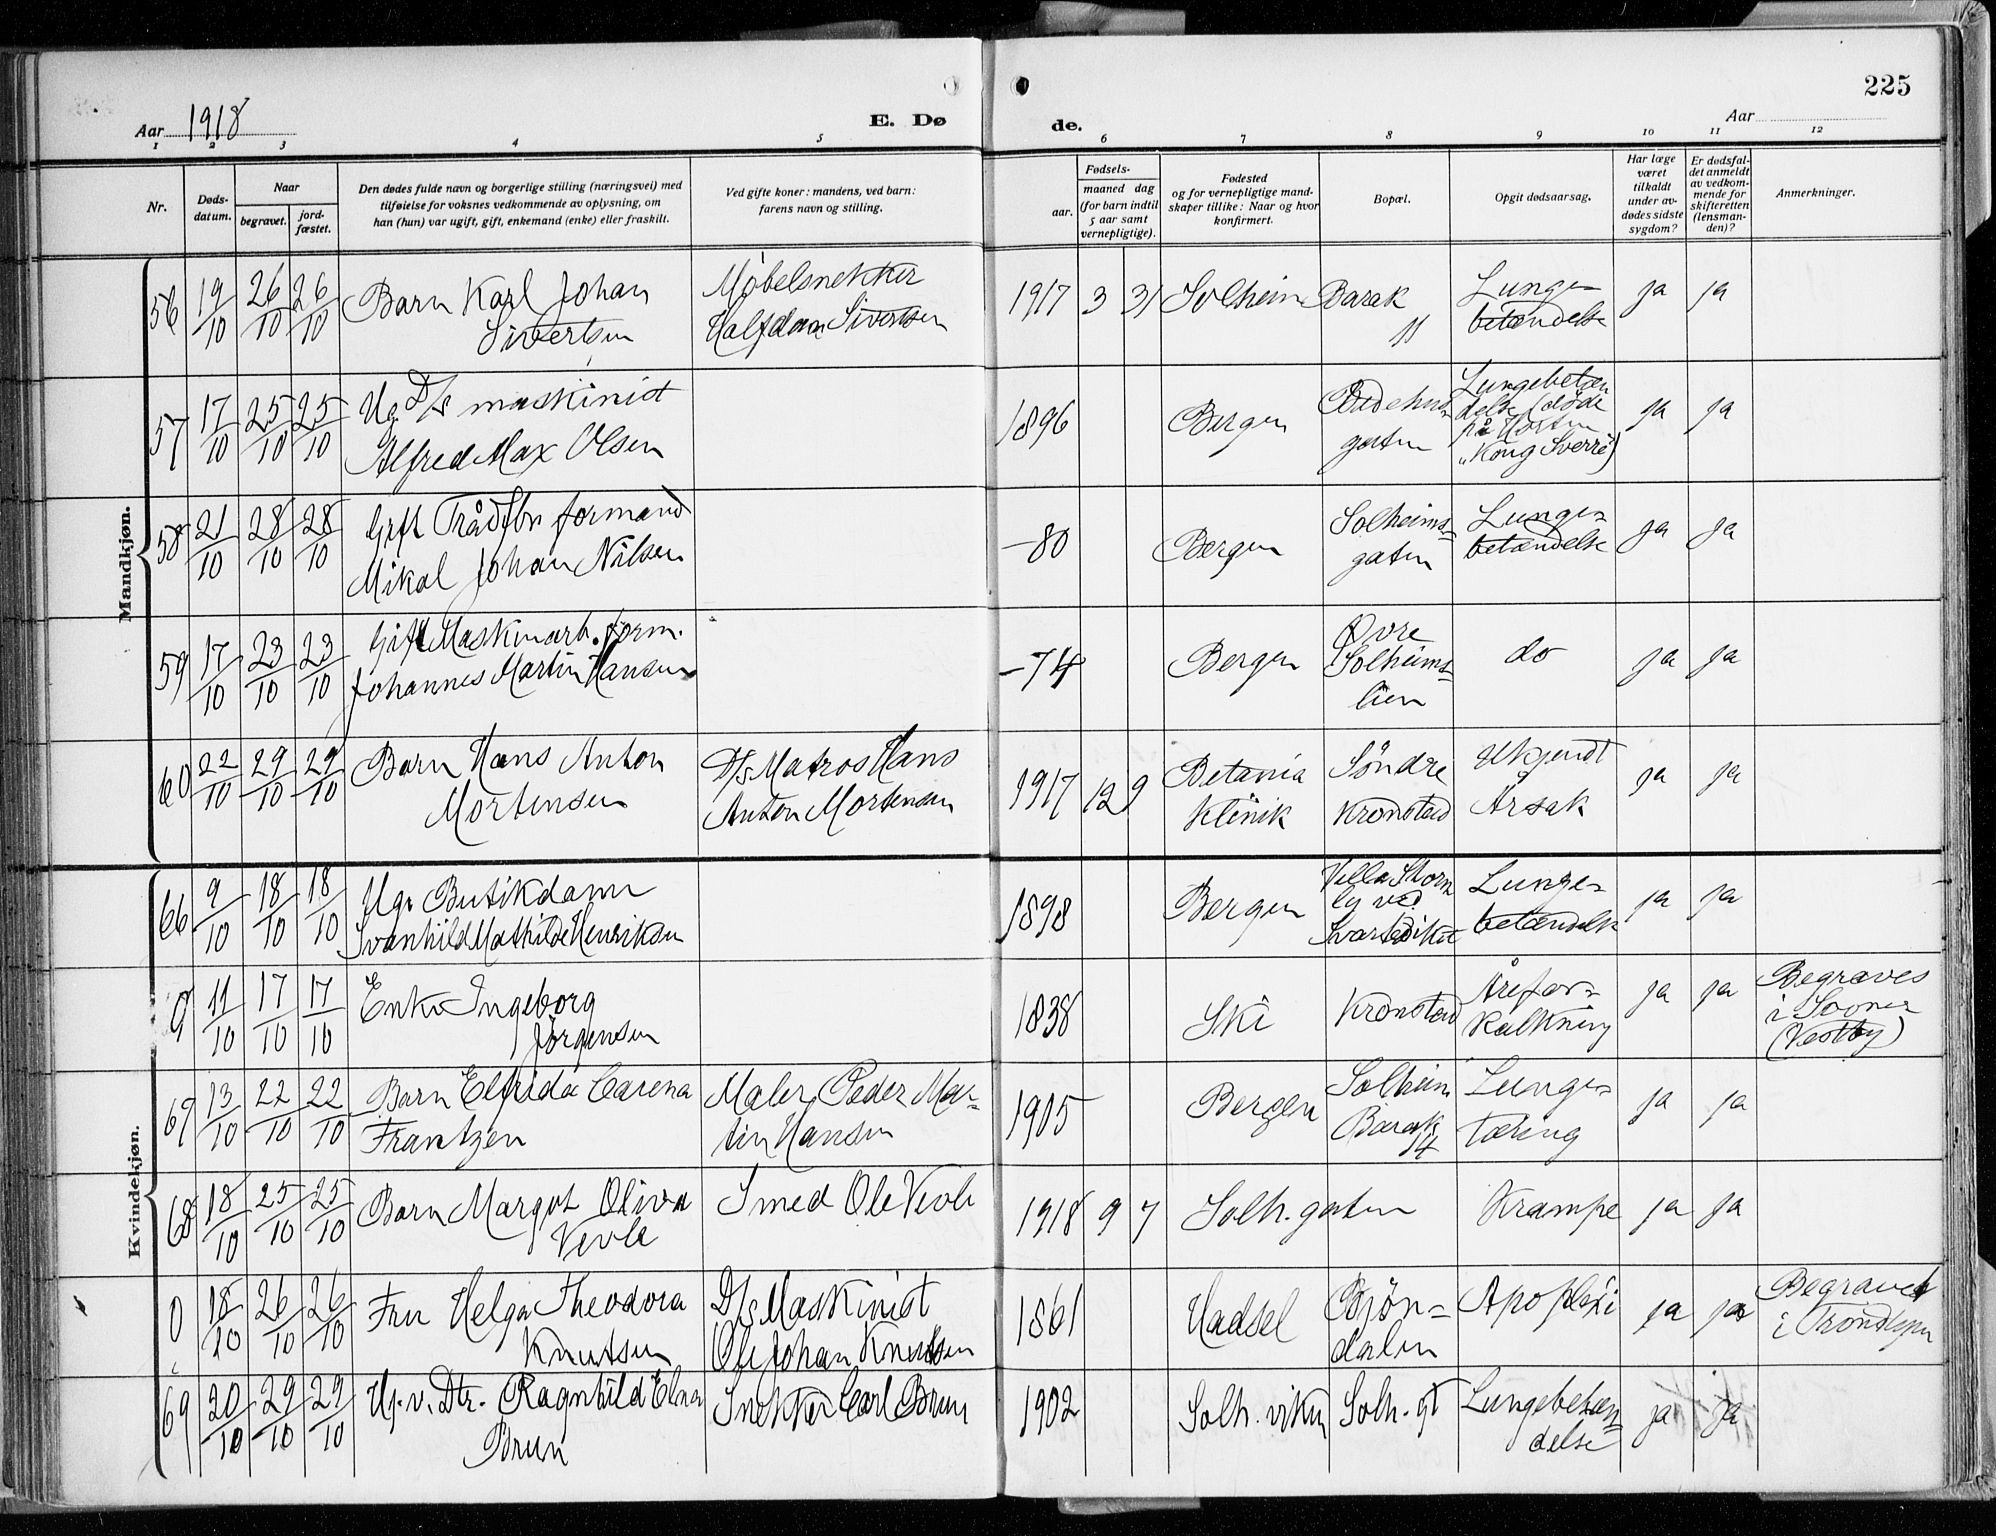 225
Aar 1918
E. Dø
de.
Aar
1 2 3 4 5 6 7 8 9 10 11 12
Nr.
Døds-
datum.
Naar
begravet.
jord-
fæstet.
Den dødes fulde navn og borgerlige stilling (næringsvei) med
tilføielse for voksnes vedkommende av oplysning, om
han (hun) var ugift, gift, enkemand (enke) eller fraskilt.
Ved gifte koner: mandens, ved barn:
farens navn og stilling.
Fødsels-
aar.
maaned dag
(for barn indtil
5 aar samt
vernepligtige).
Fødested
og for vernepligtige mand-
skaper tillike: Naar og hvor
konfirmert.
Bopæl.
Opgit dødsaarsag.
Har læge
været
tilkaldt
under av-
dødes sidste
sygdom?
Er dødsfal-
det anmeldt
av vedkom-
mende for
skifteretten
(lensman-
den)?
Anmerkninger.
Mandkjøn.
56 19/10 26/10 26/10 Barn Karl Johan
Sivertsen
Møbelsnekker
Halfdan Sivertsen
1917 3 31 Solheim Barak
11
Lunge-
betændelse
ja ja
57 17/10 25/10 25/10 Ug. D/s maskinist
Alfred Max Olsen
1896 Bergen
gaten
Lungebetæn
delse (døde
på Horten
"Kong Sverre")
ja ja
58 21/10 28/10 28/10 Gift Trådfbr formand
Mikal Johan Nilsen
-80 Bergen
Solheims-
gaten
Lunge-
betændelse
ja ja
59 17/10 23/10 23/10 Gift Maskinarb. form.
Johannes Martin Hansen
-74 Bergen
Øvre
Solheims-
lien
do ja ja
60 22/10 29/10 29/10 Barn Hans Anton
Mortensen
D/s Matros Hans
Anton Mortensen
1917 12 9
Betania
Klinik
Söndre
Kronstad
Ukjendt
Årsak
ja ja
Kvindekjøn.
66 9/10 18/10 18/10 Ug. Butikdame
Svanhild Mathilde Henriksen
1898 Bergen
Villa Storm
ly ved
Svartediket
Lunge-
betændelse
ja ja
0 11/10 17/10 17/10 Enke Ingeborg
Jörgensen
1838 Ski Kronstad
Årefor-
kalkning
ja ja
Begraves
i Sooner
(Vestby)
67 13/10 22/10 22/10 Barn Elfrida Carena
Frantzen
Maler Peder Mar-
tin Hansen
1905 Bergen
Solheim
Barak
14
Lunge-
tæring
ja ja
68 18/10 25/10 25/10 Barn Margot Oliva
Vevle
Smed Ole Vevle
1918 9 7 Solh. gaten Krampe ja ja
0 18/10 26/10 26/10 Fru Helga Theodora
Knutsen
D/s Maskinist
Ole Johan Knutsen
1861 Hadsel
Björn-
dalen
Apoplexi ja ja
Begravet
i Trondhjem
69 20/10 29/10 29/10 Ug. v. Dtr. Ragnhild Elna
Brun
Snekker Carl Brun
1902 Solh. viken Solh. gt
Lungebetæn-
delse
ja ja